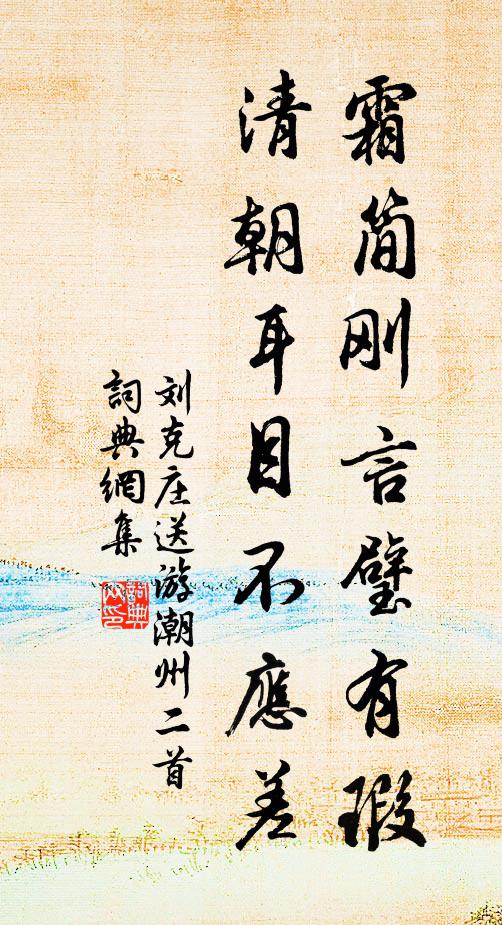 霜简刚言璧有瑕
清朝耳目不應差
刘克庄送游潮州二首
詞典網集